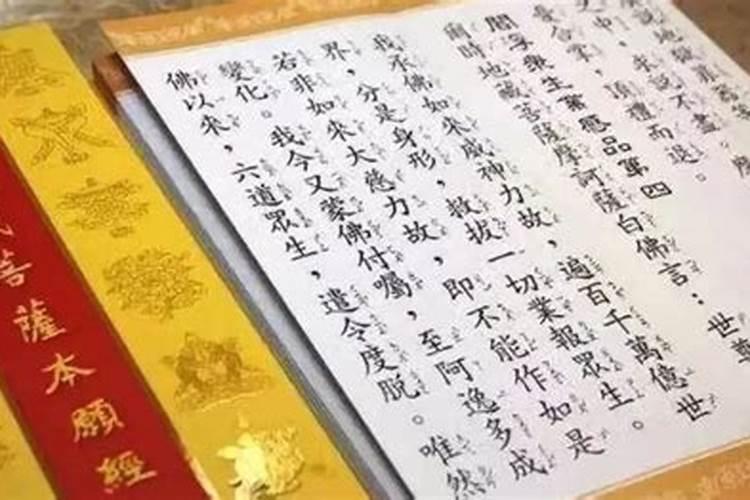 說不盡。
合掌，頂禮而退。
閻浮眾生業感品第四
爾時地藏菩薩摩訶薩白佛言：世尊
我承佛如來威神力故，遍百千萬億世
界，分是身形，救拔一切業報眾生。
若非如來大慈力故，即不能作如是
變化。我今又蒙佛付囑，至阿逸多成
佛以來，六道眾生，遣令度脫。唯然
菩薩本願經